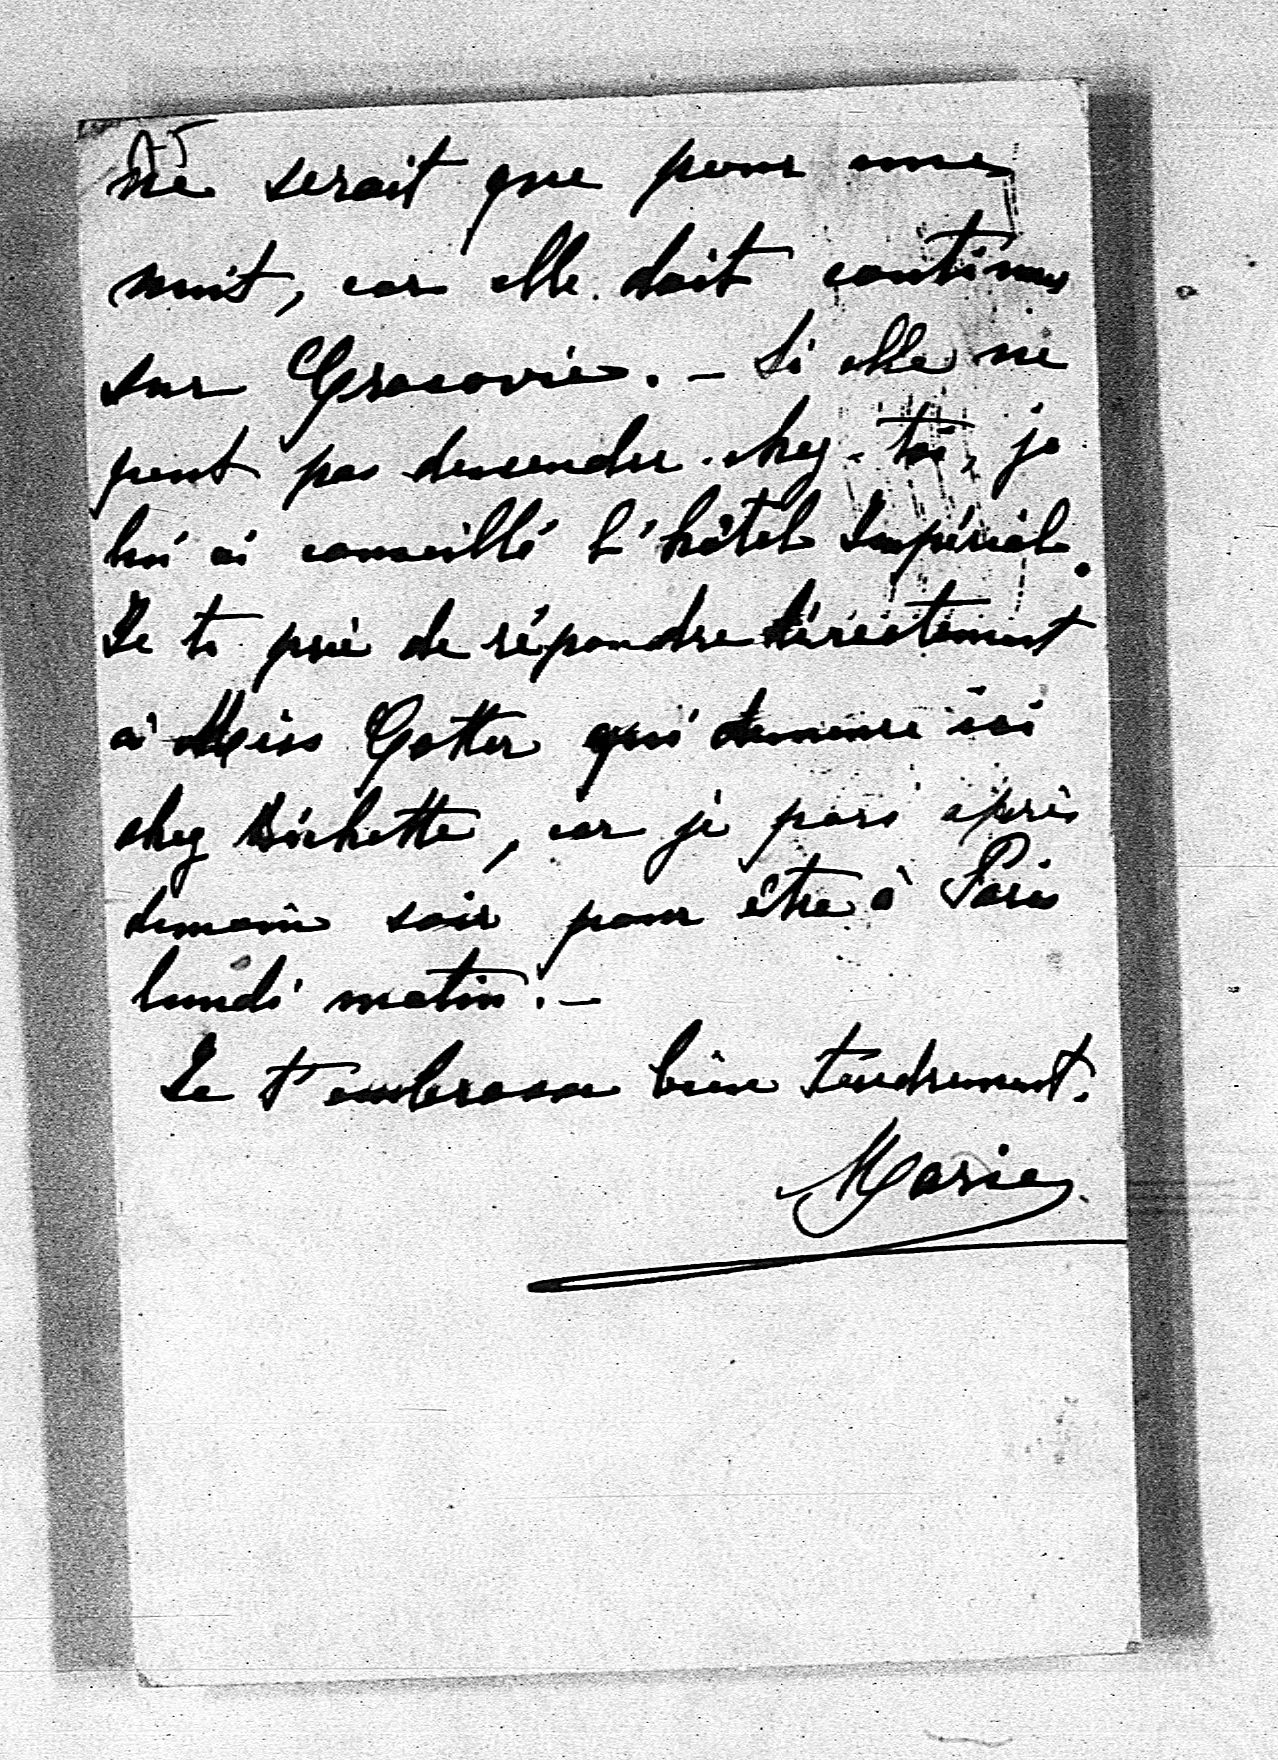 ne serait que pour une
nuit, car elle doit continuer
sur Cracovie. – Si elle ne
peut pas descendre chez toi, je
lui ai conseillé l'hôtel Impérial.
Je te prie de répondre directement
à Miss Gotter qui demeure ici
chez Bichette, car je pars après
demain soir pour être à Paris
lundi matin. –
Je t'embrasse bien tendrement.
Marie